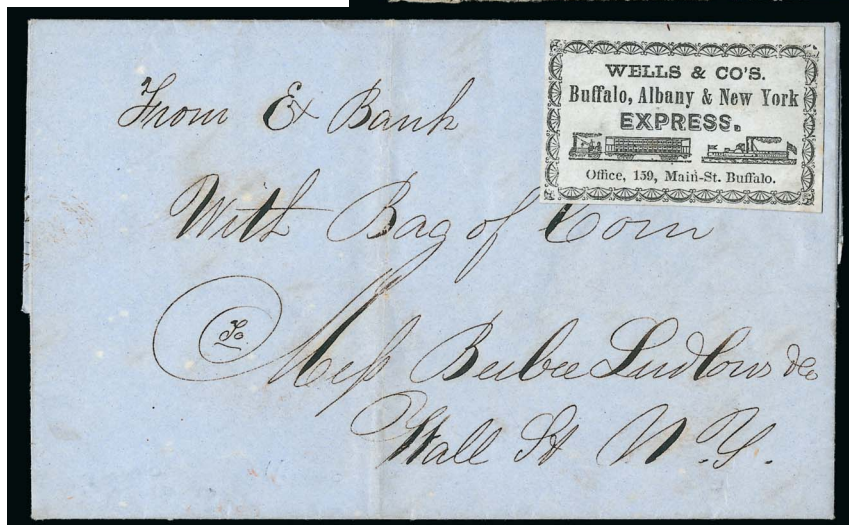 WELLS & CO'S.
Buffalo, Albany & New York
EXPRESS.
Office, 159, Main-St. Buffalo.
From Ex Bank
With Bag of Coin
To
Mess Beebee Ludlow & Co
Wall St N.Y.